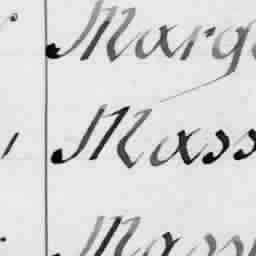 Marg
Mass
Mass